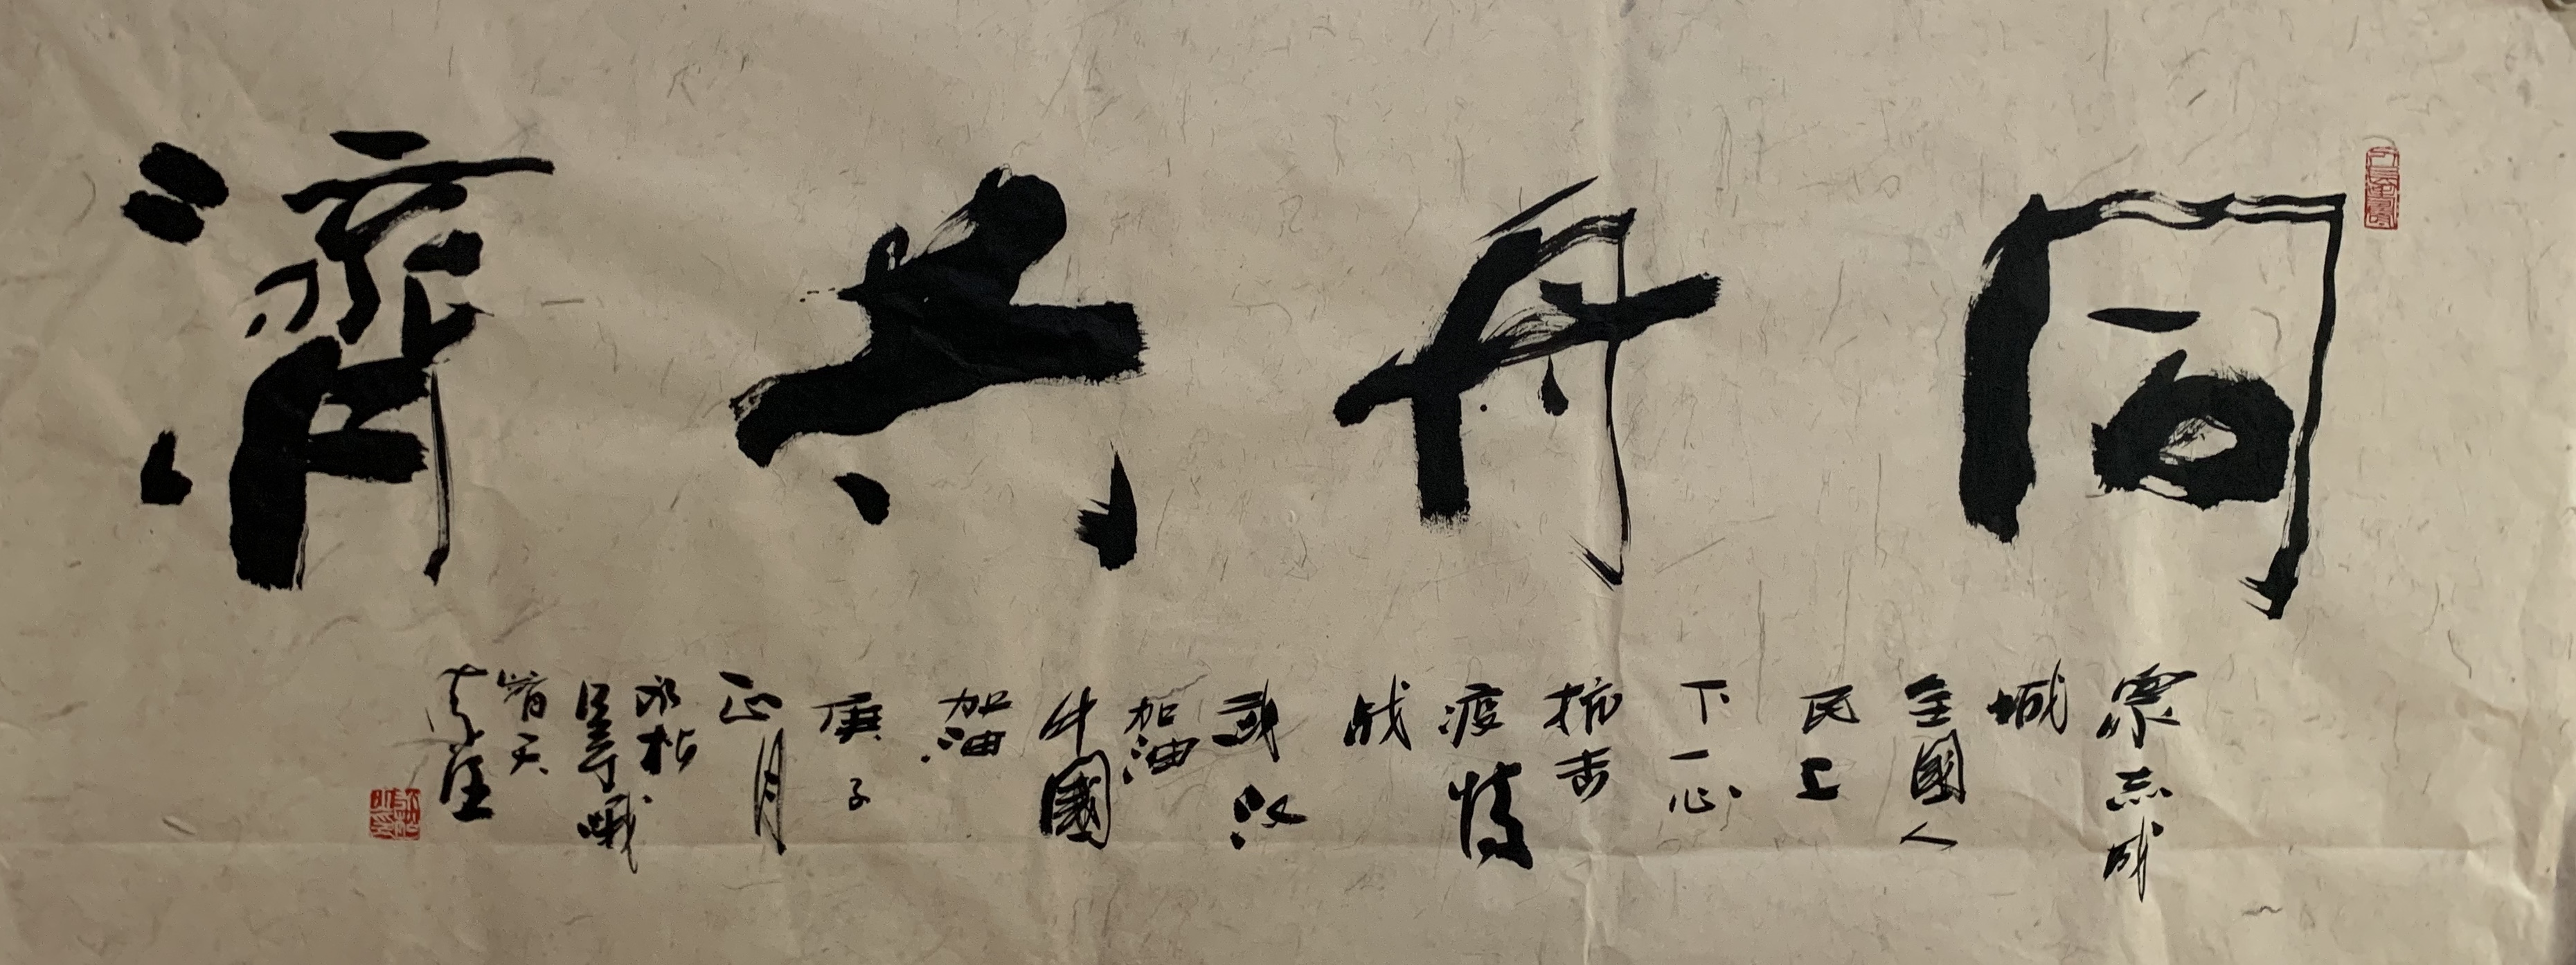 同舟共濟
衆志成
城
全國人
民上
下一心
抗击
疫情
战
武汉
加油
中國
加油
庚子
正月
永松